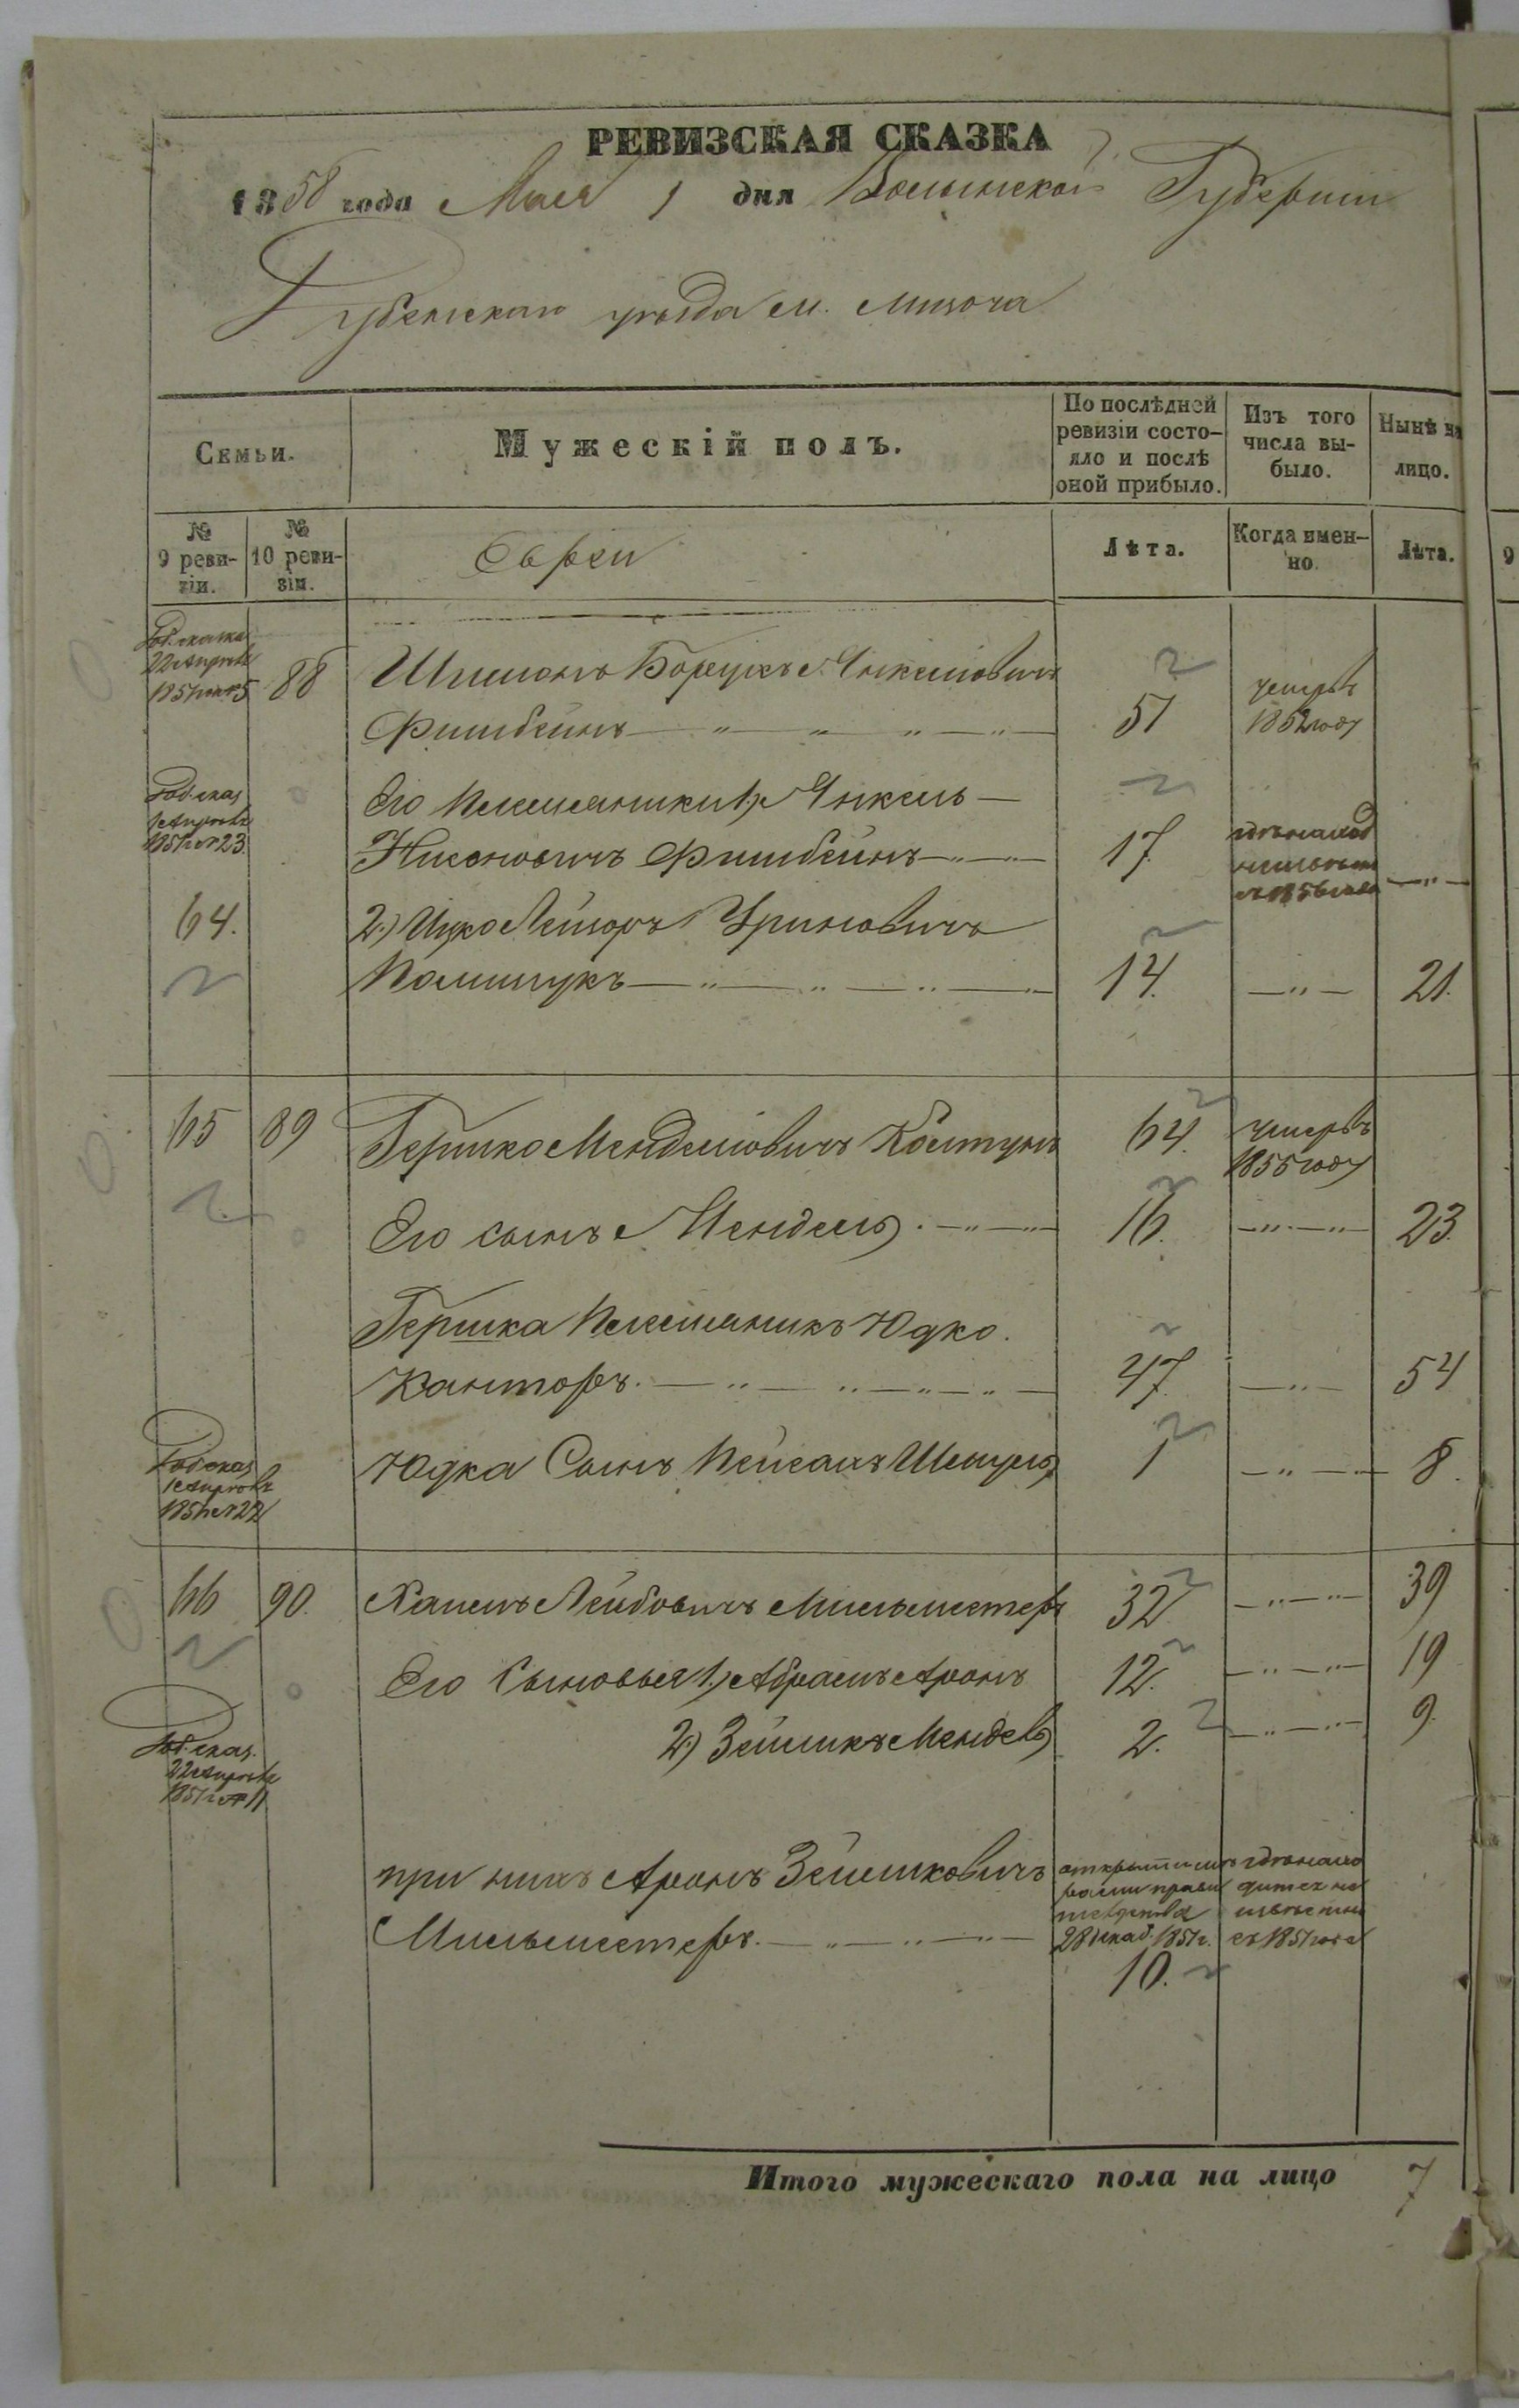 РЕВИЗСКАЯ СКАЗКА
1858 года Мая 1 дня Волынской Губернiи
Дубенскаго уѣзда м. Мизоча
Семьи.
Мужескiй полъ.
По послѣдней ревизiи состо-
яло и послѣ
оной прибыло.
Изъ того
числа вы-
было.
Нынѣ на
лицо.
№
9 реви-
зiи.
№
10 реви-
зiи.
Евреи
Лѣта.
Когда имен-
но.
Лѣта.
9
Доб. сказка
22 Апрѣля
1851 г №5
88
Шимонъ Борухъ Янкелiовичъ
Фишбейнъ
51
умеръ
1852 году
Доб. сказ.
1851 г № 23.
Его племянники 1) Янкель
Фишбейнъ
17.
64.
2.) Ицко Лейзоръ
Полищукъ
14.
21.
65
89
Гершко Менделiовичъ Койтунъ
64.
умеръ
1855 году
Его сынъ Мендель
16.
23.
Гершка племянникъ Юдко
Канторъ.
47.
54
Доб. сказ.
1851 г № 22
Юдка Сынъ Пейсахъ Шмуль
1
8.
66
90.
Хаимъ Лейбовичъ Мильместеръ
32
39
Его Сыновья 1.) Абрамъ Аронъ
12.
19
2.) Зейликъ Мендель
2.
9.
Доб. сказ.
22 Апрѣля
1851 г № 11
при нихъ Аронъ Зейликовичъ
Мильместеръ.
28 декаб. 1851 г.
10.
съ 1851 года
Итого мужескаго пола на лицо 7